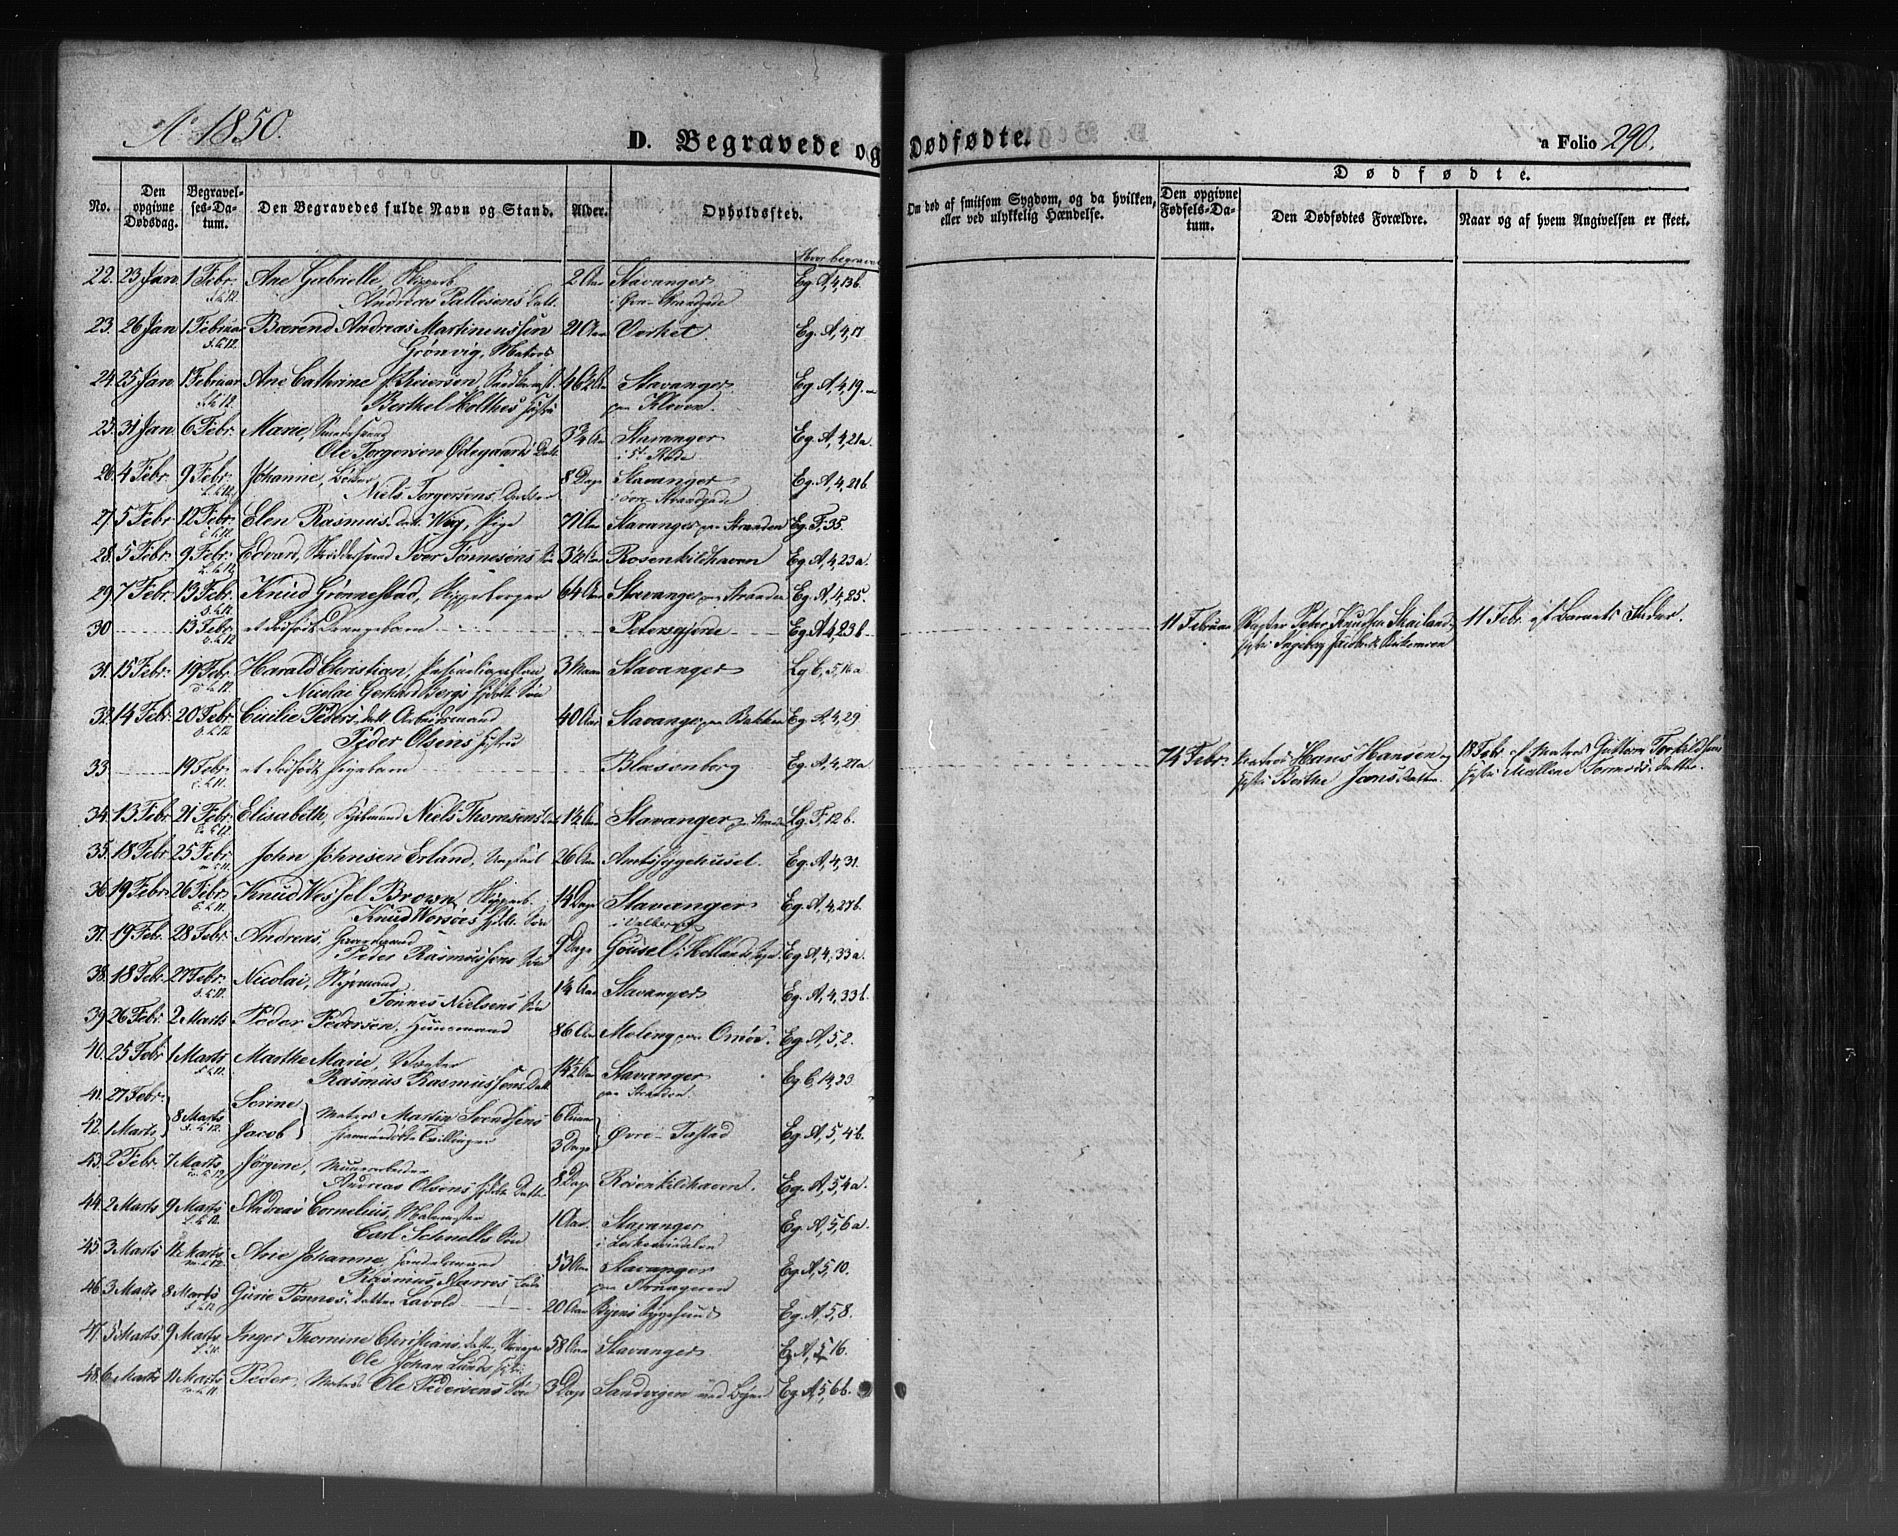 Aº 1850.
D. Begravede og Dødfødte.
a Folio 290.
No.
Den opgivne Dødsdag.
Begravelses-Datum.
Den Begravedes fulde Navn og Stand.
Alder.
Opholdssted.
Hvor begravet
Om død af smitsom Sygdom, og da hvilken, eller ved ulykkelig Hændelse.
Dødfødte.
Den opgivne Fødsels-Datum.
Den Dødfødtes Forældre.
Naar og af hvem Angivelsen er skeet.
22. 23 Jan 1 Febr. Ane Gabrielle, Skipper 2 Aar Stavanger Eg. A, 4, 13b.
Andreas Pallesens Datt. i Øvre Strandgade
23. 26 Jan 1 Februar Bærend Andreas Martinussen 21 Aar Verket. Eg. A, 4, 17
Grønvig, Matros
24. 25 Jan 1 Februar Ane Cathrine 46½ Aar Stavanger Eg. A, 4, 19.
Berthel Holthes Hustru paa Kleven.
25. 31 Jan 6 Febr. Marie, 3¾ Aar Stavanger Eg. A, 4, 21a.
Ole Torgersen Ødegaards Datt.
26. 4 Febr. 9 Febr. Johanne, Bødker 8 Dage Stavanger Eg. A, 4, 21b.
Niels Torgersens Datter i Øvre Strandgade
27. 5 Febr. 12 Febr. Elen Rasmusdatt. Waag, Pige 71 Aar Stavanger paa Stranden Eg. F, 35.
28. 5 Febr. 9 Febr. Edvard, Iver Tønnesens Søn 3½ Aar Rosenkildhaven Eg. A, 4, 23a.
29. 7 Febr. 13 Febr. Knud Grønnestad, Skippeborger 64 Aar Stavanger paa Stranden Eg. A, 4, 25.
30 13 Febr. et dødfødt Drengebarn Petersgjerde Eg. A, 4, 23b
11 Februar Peter Knudsen Skailand 11 Febr. af Barnets Fader.
Hustru Ingeborg
31. 15 Febr. 19 Febr. Harald Christian, 3 Maan Stavanger Lg. C, 5, 16a
Nicolai Gerhard Bergs Søn
32. 14 Febr. 20 Febr. Cicilie Pedersdatt. Arbeidsmand 40 Aar Stavanger paa Bakken Eg. A, 4, 29
Peder Olsens Hustru
33 19 Febr. et dødfødt Pigebarn Blasenborg Eg. A, 4, 21a
14 Febr. Matros Hans Hansen og 18 Febr. af Matros Guttorm Torkildsens
Hustru Berthe Jansdatter Hustru Mallene Tormodsdatter
34. 13 Febr. 21 Febr. Elisabeth, Kjøbmand Niels Thomsens Datt 1½ Aar Stavanger paa Stranden Lg. F, 12b.
35. 18 Febr. 25 Febr. John Johnsen Erland, Ungkarl 26 Aar Amtssygehuset. Eg. A, 4, 31.
36. 19 Febr. 26 Febr. Knud Wessel Brown, Skipper 14 Dage Stavanger Eg. A, 4, 27b.
Knud Worsøes Søn i Valberget
37. 19 Febr. 28 Febr. Andreas, Gaardmand 9 Dage Gousel i Hetlands Sogn Eg. A, 4, 33a.
Peder Rasmussens Søn
38. 18 Febr. 27 Febr. Nicolai, Styrmand 1¼ Aar Stavanger Eg. A, 4, 33b.
Tønnes Nielsens Søn
39. 26 Febr. 2 Marts Peder Pedersen, Huusmand 86 Aar Meling paa Omøe. Eg. A, 5, 2.
40. 25 Febr. 1 Marts Marthe Marie, Vægter 14½ Aar Stavanger Eg. C, 14, 23.
Rasmus Rasmussens Datt. paa Stranden.
41. 27 Febr. Serine
42. 1 Marts 8 Marts Jacob Matros Martin Svendsens 3 Dage Øvre Tastad Eg. A, 5, 4b.
Tvillinger
43. 2 Febr. 7 Marts Jørgine, Muurarbeider 8 Dage Rosenkildhaven. Eg. A, 5, 4a.
Andreas Olsens Datt.
44. 2 Marts 9 Marts Andreas Cornelius, Malemester 1 Aar. Stavanger Eg. A, 5, 6a.
Carl Schnells Søn
45. 3 Marts 11 Marts Ane Johanne, Handelsmand 53 Aar Stavanger Eg. A, 5, 10.
Rasmus Narres
46. 3 Marts 8 Marts Gurie Tønnesdatter Lavold 20 Aar Byens Sygehuus Eg. A, 5, 8.
47. 5 Marts 9 Marts Inger Thomine Christiansdatter, 58 Aar Stavanger Eg. A, 5, 16.
Ole Johan Lunds
48. 6 Marts 11 Marts Peder, Matros Ole Pedersens Søn 3 Dage Sandvigen ved Byen Eg. A, 5, 6b.